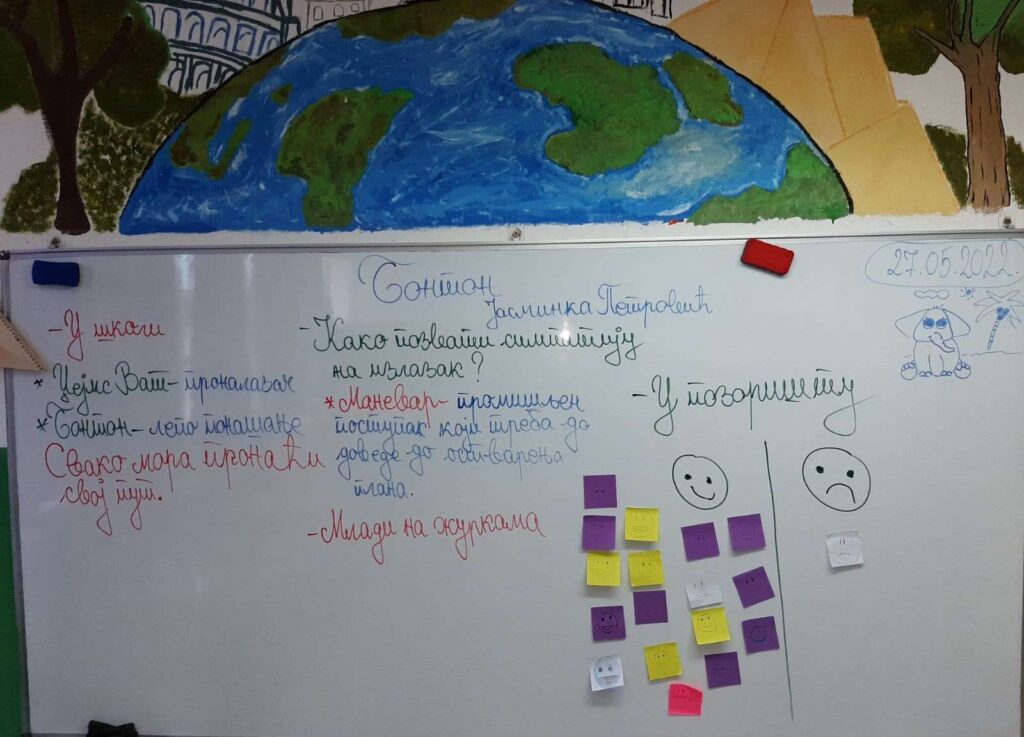 27.05.2022.
Бонтон
Јасминка Петровић
- У школи
* Џејмс Ват - проналазач
* Бонтон - лепо понашање
Свако мора пронаћи
свој пут.
- Како позвати симпатију
на излазак?
* Маневар - промишљен
поступак који треба да
доведе до остварења
плана.
- Млади на журкама
- У позоришту